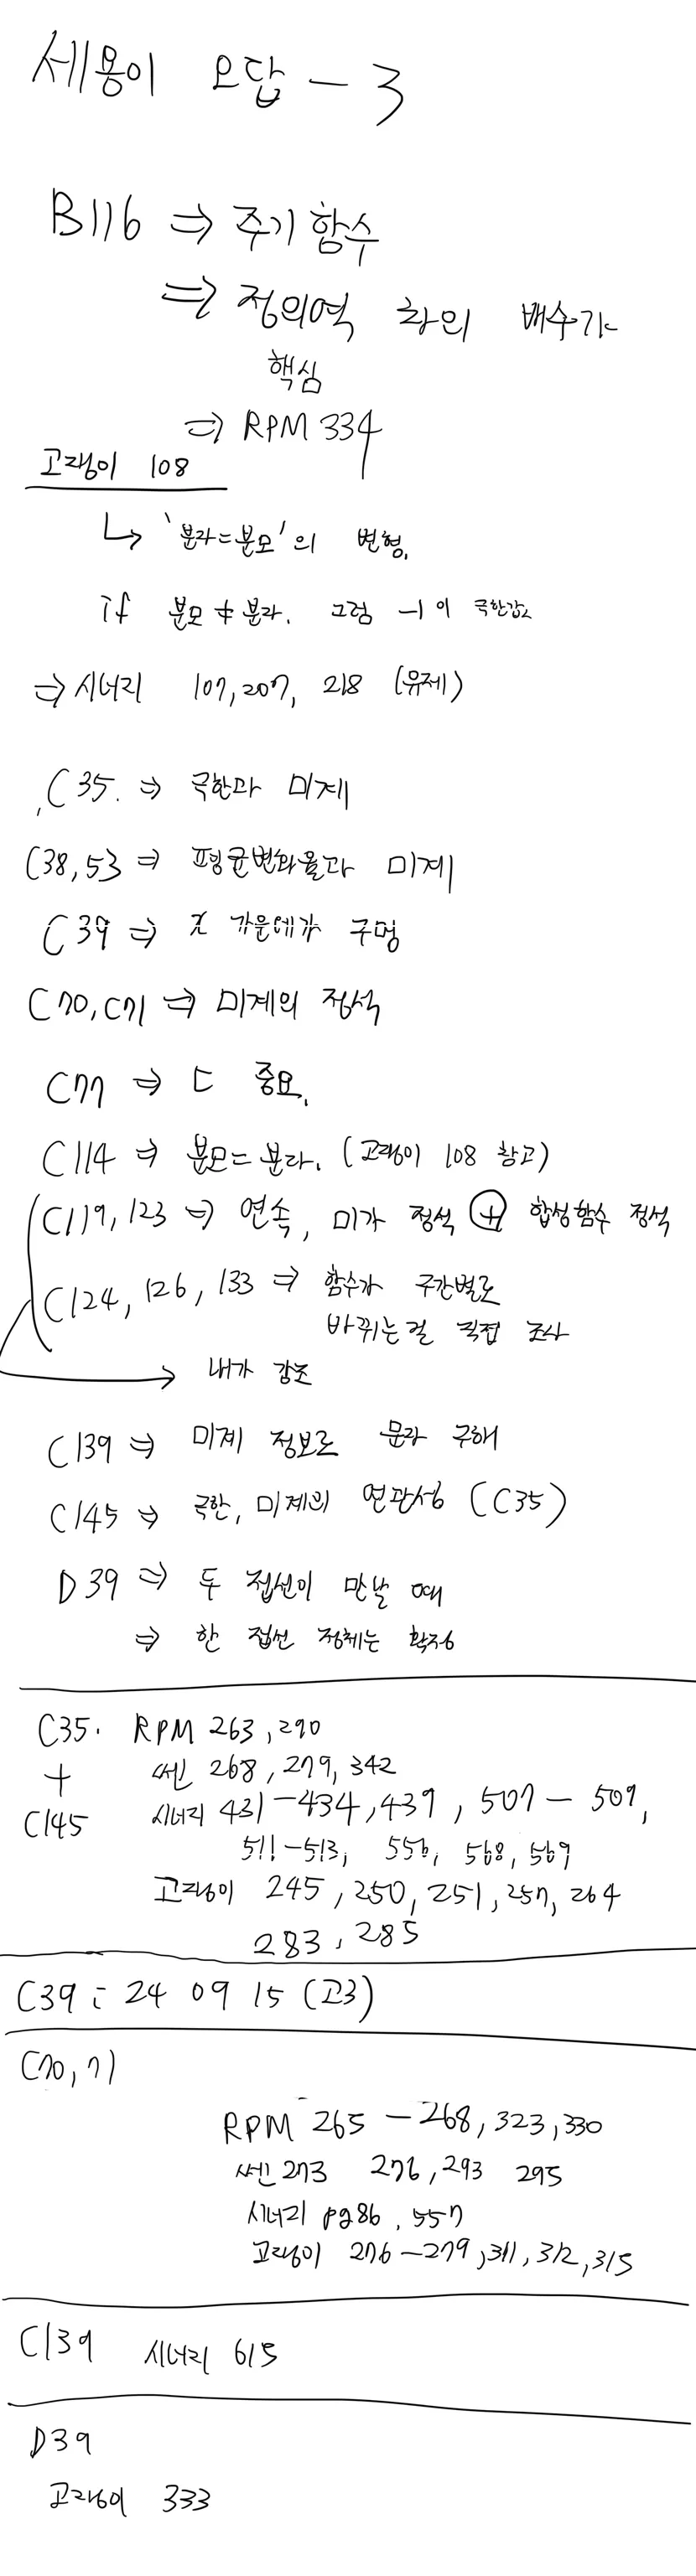 세용이 오답 - 3
B116 ⇒ 주기함수
⇒ 정의역 차의 배수가
핵심
⇒ RPM 334
고쟁이 108
↳ '분자=분모'의 변형.
if 분모≠분자. 그럼 -1이 극한값
⇒ 시너지 107, 207, 218 (유제)
C35. ⇒ 극한과 미계
C38, 53 ⇒ 평균변화율과 미계
C39 ⇒ x 가운데가 구멍
C70, C71 ⇒ 미계의 정석
C77 ⇒ ㄷ 중요.
C114 ⇒ 분모=분자. (고쟁이 108 참고)
C119, 123 ⇒ 연속, 미가 정석 ⊕ 합성함수 정석
C124, 126, 133 ⇒ 함수가 구간별로
바뀌는걸 직접 조사
→ 내가 강조
C139 ⇒ 미계 정보로 문자 구해
C145 ⇒ 극한, 미계의 연관성 (C35)
D39 ⇒ 두 접선이 만날 때
⇒ 한 접선 정체는 확정
C35. RPM 263, 290
+ 쎈 268, 279, 342
C145 시너지 431-434, 439, 507-509,
511-513, 556, 568, 569
고쟁이 245, 250, 251, 257, 264
283, 285
C39 : 24 09 15 (고3)
C70, 71
RPM 265-268, 323, 330
쎈 273 276, 293 295
시너지 pg86, 557
고쟁이 276-279, 311, 312, 315
C139 시너지 615
D39
고쟁이 333